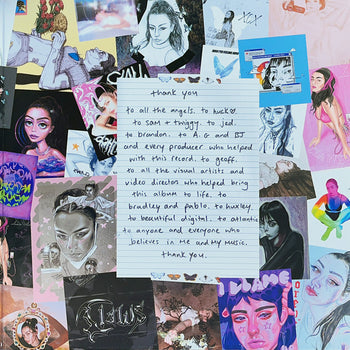 XOX
thank you
to all the angels. to huck♡
to sam + twiggy. to jed.
to brandon. to A.G and BJ
and every producer who helped
with this record. to geoff.
to all the visual artists and
video directors who helped bring
this album to life. to
bradley and pablo. to huxley.
to beautiful digital. to atlantic
to anyone and everyone who
believes in me and my music.
thank you.
claws